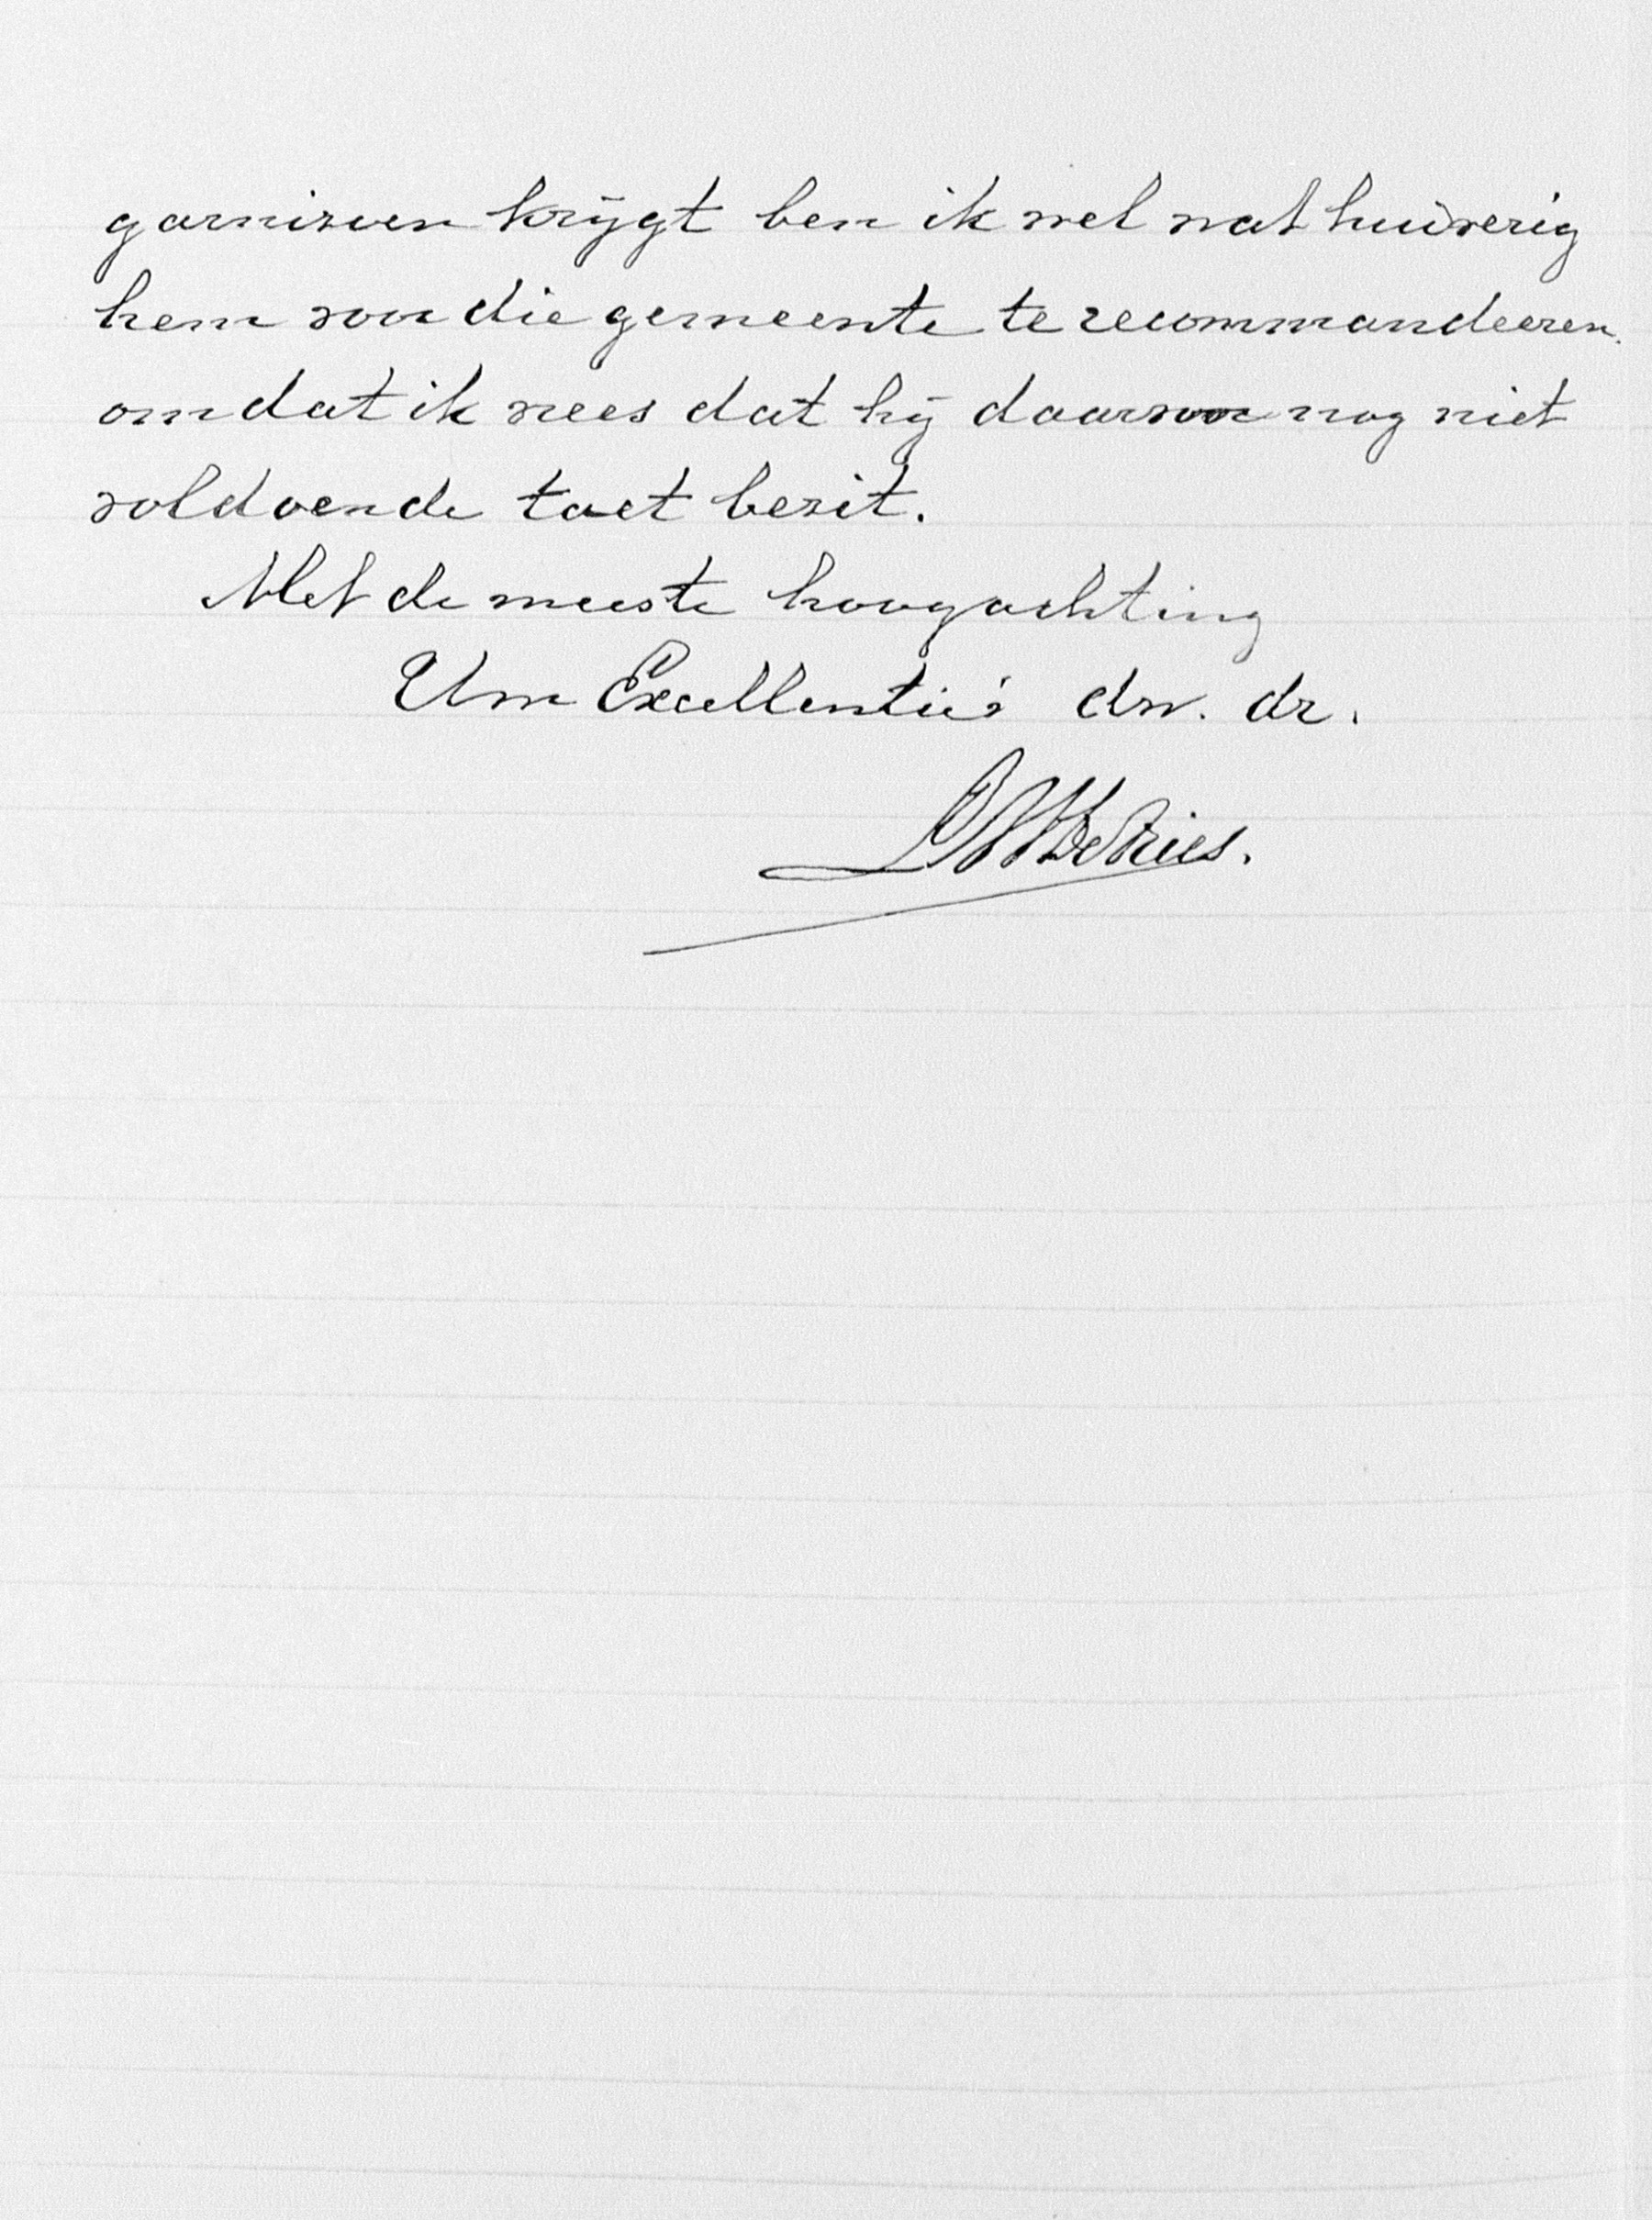 garnizoen krijgt ben ik wel wat huiverig
hem voor die gemeente te recommandeeren
omdat ik vrees dat hij daarvoor nog niet
voldoende tact bezit.
Met de meeste hoogachting
Uwe Excellentie's dw. dr.
de Vries.